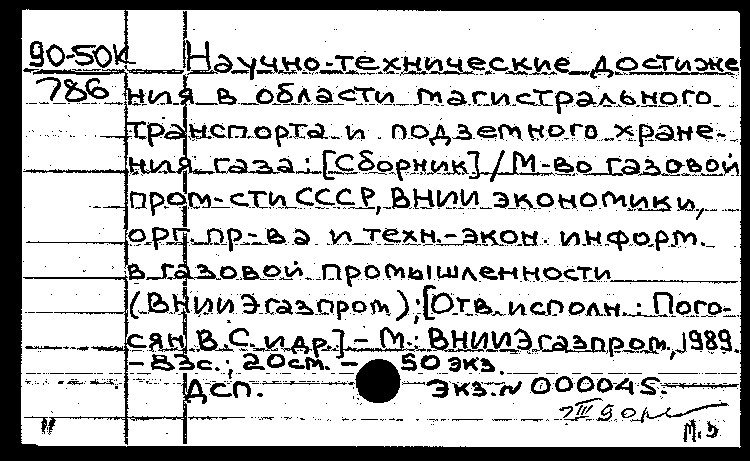 90-50К Научно-технические достиже
786 ния в области магистрального
транспорта и подземного хране-
ния газа: [Сборник] / М-во газовой
пром-сти СССР, ВНИИ экономики,
орг. пр-ва и техн.-экон. информ.
в газовой промышленности
(ВНИИЭгазпром); [Отв. исполн.: Пого-
сян В.С. и др.] - М.: ВНИИЭгазпром, 1989.
- 83с.; 20см. - 50 экз.
ДСП. Экз. N 000045.
М.